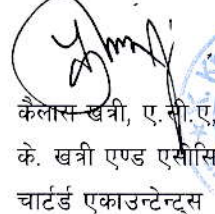 कैलास खत्री, ए. सी.ए,
के. खत्री एण्ड एसोसि
चार्टर्ड एकाउन्टेन्ट्स